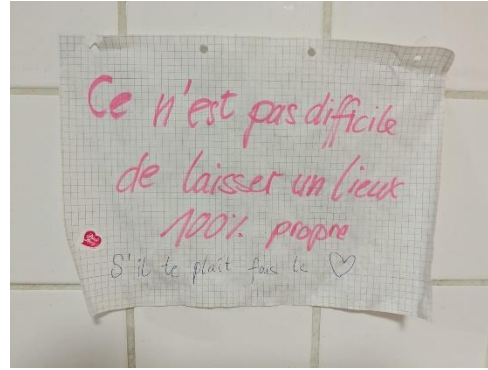 Ce n'est pas difficile
de laisser un lieux
100% propre
S'il te plait fais le